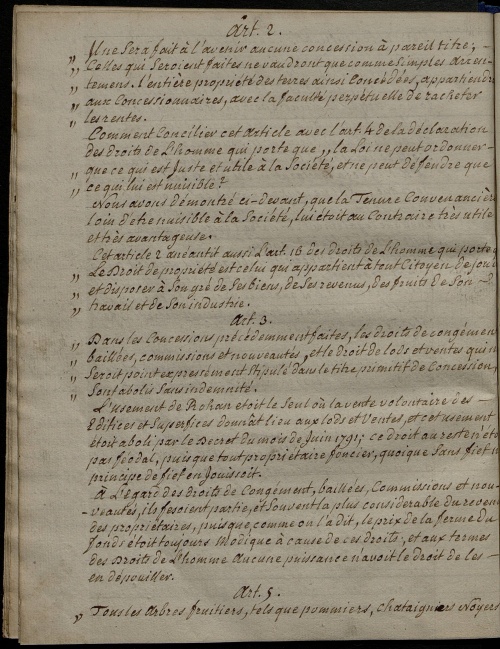 Art. 2.
Il ne Sera fait à l'avenir aucune concession à pareil titre; -
,, Celles qui Seroient faites ne vaudront que comme Simples arren-
,, temens. l'entière propriété des terres ainsi Concédées, appartiendra
,, aux Concessionnaires, avec la faculté perpétuelle de racheter
,, les rentes.
Comment Concilier cet article avec l'art. 4 de la déclaration
des droits de L'homme qui porte que ,, la Loi ne peut ordonner -
,, que ce qui est Juste et utile à la Société, et ne peut défendre que
,, ce qui lui est nuisible?
Nous avons démontré ci-devant, que la Tenure Convenancière
loin d'etre nuisible à la Société, lui étoit au Contraire très utile
et très avantageuse.
Cet article 2 anéantit aussi L'art. 16 des droits de L'homme qui porte
,, Le Droit de propriété est celui qui appartient à tout Citoyen de jouir
,, et disposer à Son gré de Ses biens, de Ses revenus, des fruits de Son -
,, travail et de Son industrie.
Art. 3.
,, Dans les Concessions précédemment faites, les droits de congément
,, baillées, commissions et nouveautés, et le droit de lods et ventes qui n
,, Seroit point expressément Stipulé dans le titre primitif de Concession,
,, Sont abolis Sans indemnité.
L'usement de Rohan etoit le Seul où la vente volontaire des -
Edifices et Superfices donnât lieu aux lods et Ventes, et cet usement
étoit aboli par le Decret du mois de Juin 1791; ce droit au reste n'éto
pas féodal, puisque tout propriétaire foncier, quoique Sans fief n
principe de fief en Jouissoit.
À L'Egard des droits de Congément, baillées, Commissions et nou-
-veautés, ils fesoient partie, et Souvent la plus considerable du reven
des propriétaires, puisque, comme on l'a dit, le prix de la ferme du
fonds étoit toujours Modique à cause de ces droits; et aux termes
des Droits de L'homme Aucune puissance n'avoit le droit de les -
en dépouiller.
Art. 5.
,, Tous les arbres fruitiers, tels que pommiers, chataigniers Noyers